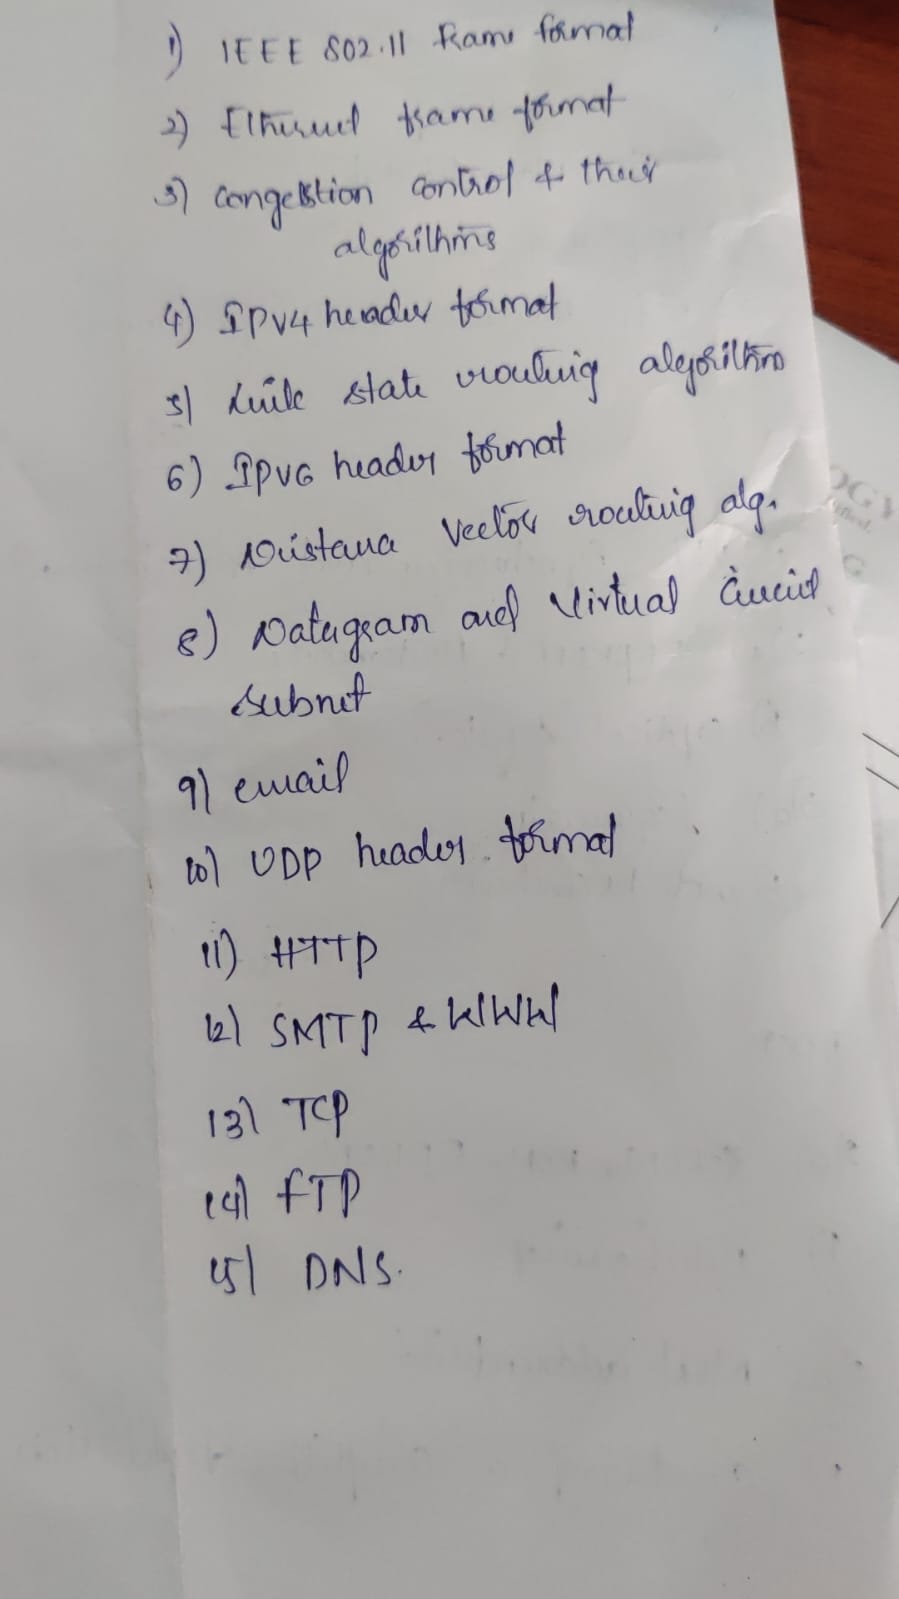 1) IEEE 802.11 frame format
2) Ethernet frame format
3) Congestion control & their
algorithms
4) IPV4 header format
5) Link state routing algorithm
6) IPV6 header format
7) Distance Vector routing alg.
8) Datagram and Virtual Circuit
subnet
9) email
10) UDP header format
11) HTTP
12) SMTP & WWW
13) TCP
14) FTP
15) DNS.